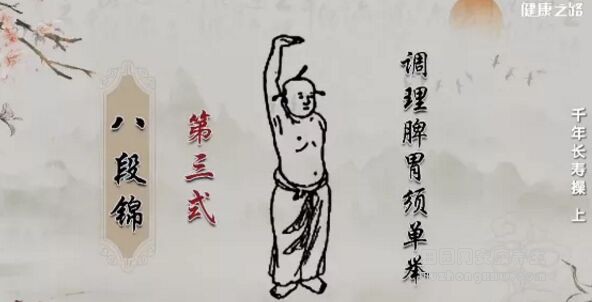 健康之路
八段锦
第三式
调理脾胃须单举
千年长寿操 上